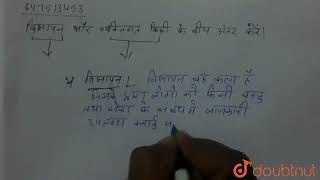 647513453
विज्ञापन और व्यक्तिगत बिक्री के बीच अंतर करें।
* विज्ञापन! विज्ञापन वह कला है
जिसके द्वारा लोगो को किसी वस्तु
तथा सेवा के संबंध में जानकारी
उपलब्ध कराई
doubtnut